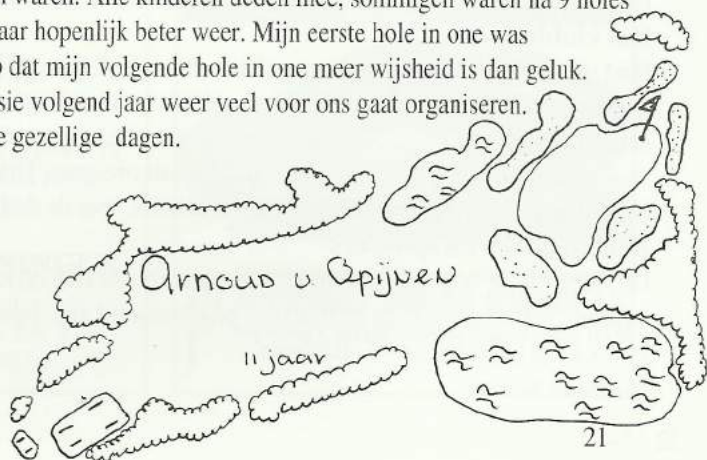 waren. Alle kinderen deden mee, sommigen waren na 9 holes
hopenlijk beter weer. Mijn eerste hole in one was
dat mijn volgende hole in one meer wijsheid is dan geluk.
sie volgend jaar weer veel voor ons gaat organiseren.
gezellige dagen.
Arnoud v. Opijnen
11 jaar
21